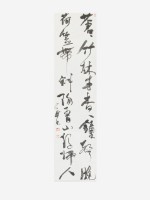 蒼々竹林寺杳々鐘聲晚
荷笠帶斜陽青山獨歸